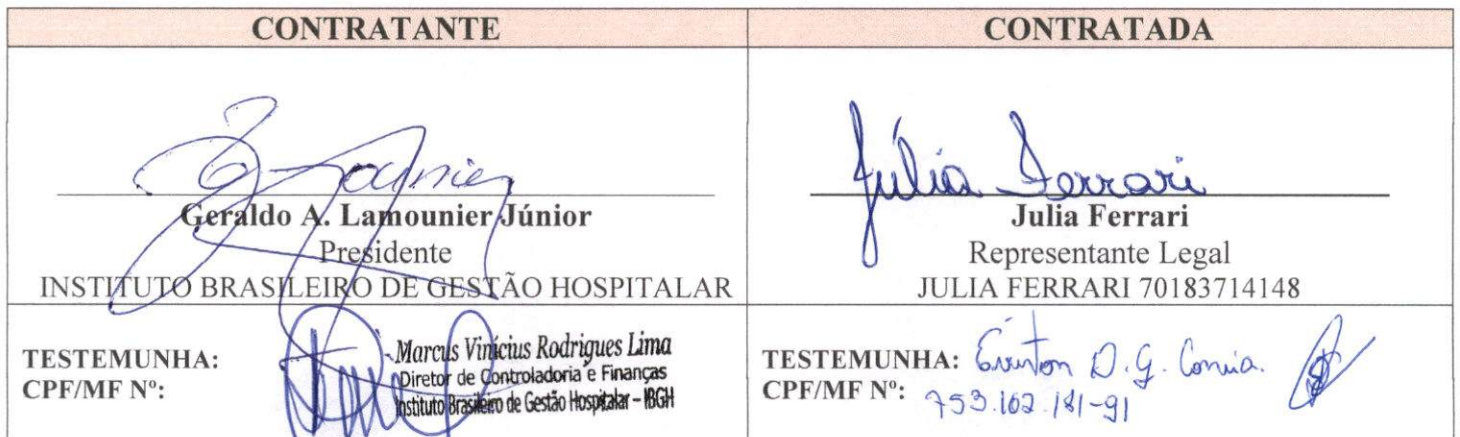 CONTRATANTE
CONTRATADA
Geraldo A. Lamounier Júnior
Presidente
INSTITUTO BRASILEIRO DE GESTÃO HOSPITALAR
Júlia Ferrari
Julia Ferrari
Representante Legal
JULIA FERRARI 70183714148
TESTEMUNHA:
CPF/MF Nº:
Marcus Vinicius Rodrigues Lima
Diretor de Controladoria e Finanças
Instituto Brasileiro de Gestão Hospitalar – IBGH
TESTEMUNHA: D. G.
CPF/MF Nº: 753.102.181-91